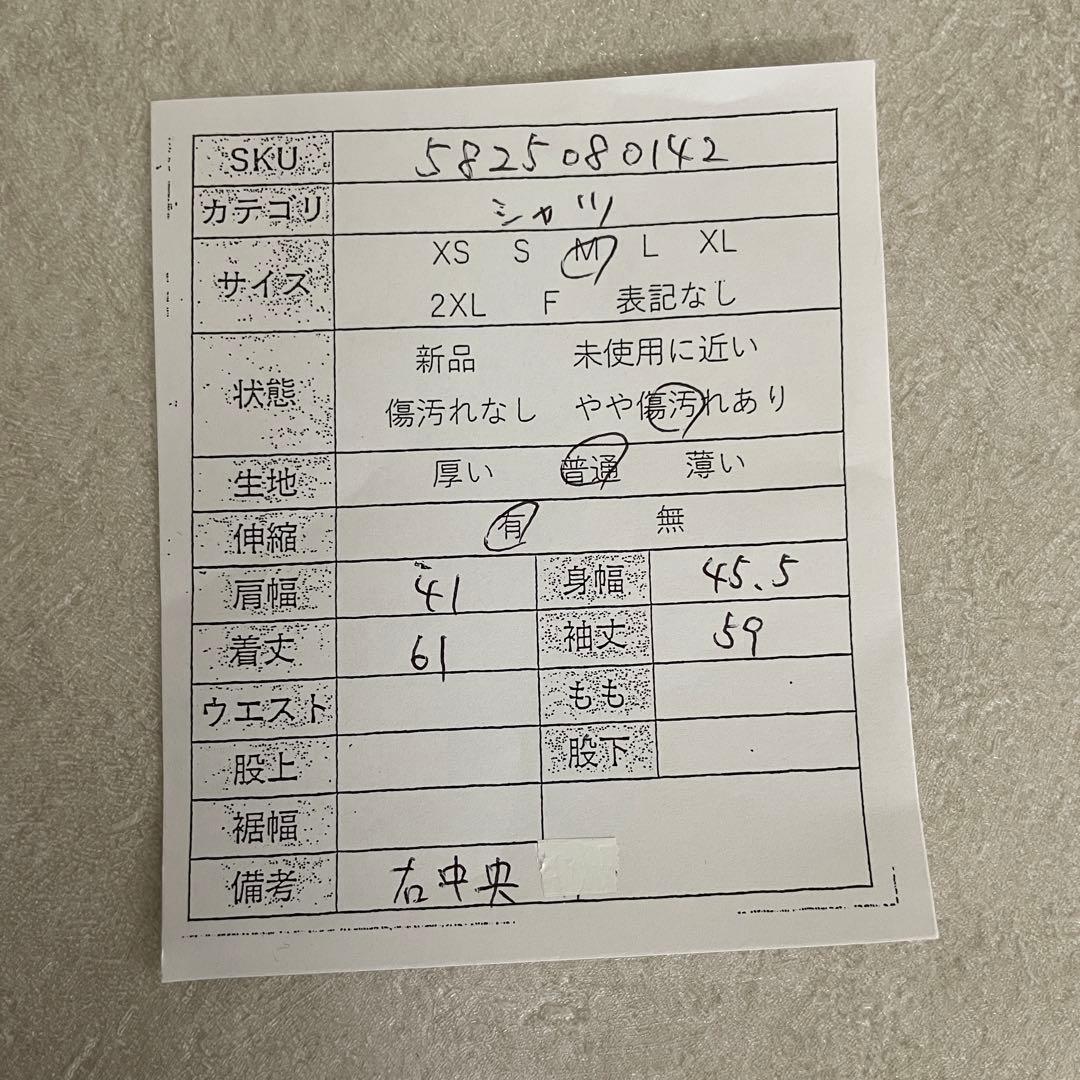 SKU 5825080142
カテゴリ シャツ
サイズ XS S M L XL
2XL F 表記なし
状態 新品 未使用に近い
傷汚れなし やや傷汚れあり
生地 厚い 普通 薄い
伸縮 有 無
肩幅 41 身幅 45.5
着丈 61 袖丈 59
ウエスト もも
股上 股下
裾幅
備考 右中央